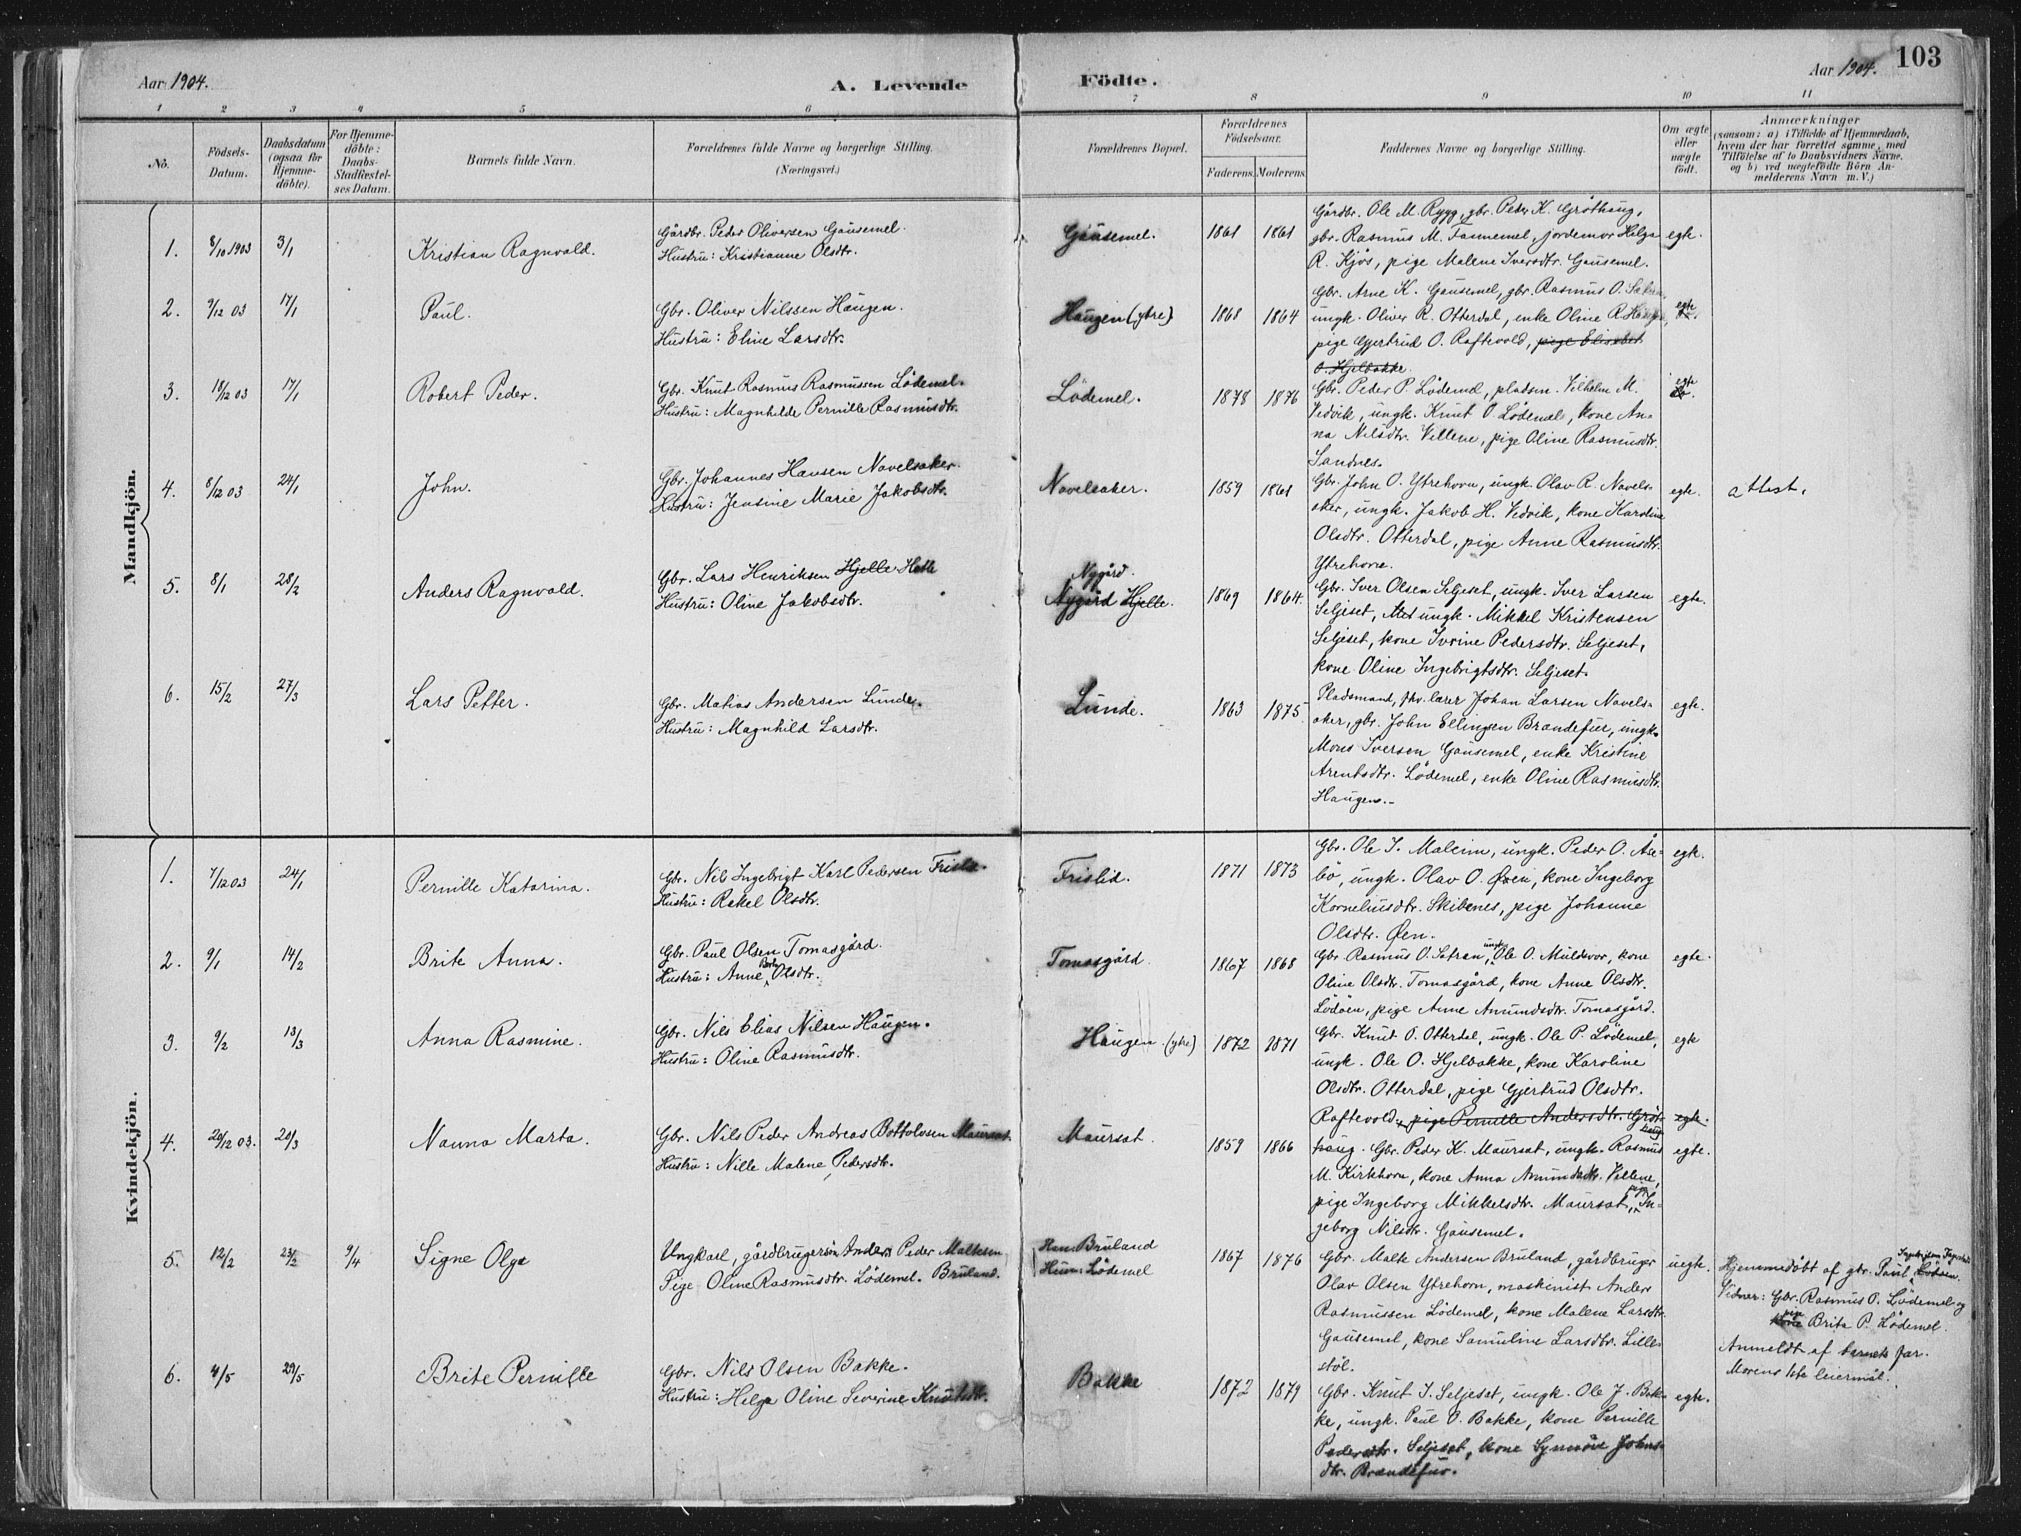 103
Aar 1904.
A. Levende Födte.
Aar 1904.
1 2 3 4 5 6 7 8 9 10 11
No.
Födsels-Datum.
Daabsdatum (ogsaa for Hjemmedöbte).
For Hjemmedöbte: Daabs-Stadfæstelses Datum.
Barnets fulde Navn.
Forældrenes fulde Navne og borgerlige Stilling.
(Næringsvei.)
Forældrenes Bopæl.
Forældrenes Födselsaar.
Faderens. Moderens.
Faddernes Navne og borgerlige Stilling.
Om ægte eller uægte födt.
Anmærkninger
(saasom: a) i Tilfælde af Hjemmedaab,
hvem der har forrettet samme, med
Tilföielse af to Daabsvidners Navne,
og b) ved uægtefödte Börn An-
melderens Navn m. V.)
Mandkjön.
1. 8/10 1903 3/1 Kristian Ragnvald.
Gårdbr. Peder Oliversen Gausemel.
Hustru: Kristianne Olsdtr.
Gausemel. 1861 1861
Gårdbr. Ole M. Rygg, gbr. Peder K. Gröthaug,
gbr. Rasmus M. Fannemel, jordemor Helga
R. Kjös, pige Malene Iversdtr. Gausemel.
egte.
2. 9/12 03 17/1 Paul.
Gbr. Oliver Nilssen Haugen.
Hustru: Eline Larsdtr.
Haugen (ytre) 1868 1864
Gbr. Arne K. Gausemel, gbr. Rasmus O.
ungk. Oliver R. Otterdal, enke Oline R. Haugen,
pige Gjertrud O. Raftevold, pige Elisabet
O. Hjelbakke.
egte
3. 18/12 03 17/1 Robert Peder.
Gbr. Knut Rasmus Rasmussen Lödemel.
Hustru: Magnhilde Pernille Rasmusdtr.
Lödemel. 1878 1876
Gbr. Peder P. Lödemel, pladsm. Vilhelm M.
Vedvik, ungk. Knut O. Lödemel, kone An-
na Nilsdtr. Vellene, pige Oline Rasmusdtr.
Sandnes.
egte
4. 8/12 03 24/1 John.
Gbr. Johannes Hansen Navelsaker.
Hustru: Jensine Marie Jakobsdtr.
Navelsaker. 1859 1861
Gbr. John O. Ytrehorn, ungk. Olav R. Navels-
aker, ungk. Jakob H. Vedvik, kone Karoline
Olsdtr. Otterdal, pige Anne Rasmusdtr.
Ytrehorn.
egte. attest.
5. 8/1 28/2 Anders Ragnvald.
Gbr. Lars Henriksen Hjelle
Hustru: Oline Jakobsdtr.
Nygård.
Nygård Hjelle. 1869 1864.
Gbr. Iver Olsen Seljeset, ungk. Iver Larsen
Seljeset, ungk. Mikkel Kristensen
Seljeset, kone Ivrine Pedersdtr. Seljeset,
kone Oline Ingebrigtsdtr. Seljeset.
egte.
6. 15/2 27/3 Lars Petter.
Gbr. Matias Andersen Lunde.
Hustru: Magnhild Larsdtr.
Lunde. 1863 1875.
Pladsmand, fhv. lærer Johan Larsen Navels-
aker, gbr. John Ellingsen Brandefur, ungk.
Mons Iversen Gausemel, enke Kristine
Arentsdtr. Lödemel, enke Oline Rasmusdtr.
Haugen.
egte.
Kvindekjön.
1. 7/12 03 24/1 Pernille Katarina.
Gbr. Nils Ingebrigt Karl Pedersen Frislid.
Hustru: Rakel Olsdtr.
Frislid. 1871 1873
Gbr. Ole I. Maleim, ungk. Peder O. Åse-
bö, ungk. Olav O. Øen, kone Ingeborg
Korneliusdtr. Skibenes, pige Johanne
Olsdtr. Øen.
egte.
2. 9/1 14/2 Brite Anna.
Gbr. Paul Olsen Tomasgård.
Hustru: Anne Berte Olsdtr.
Tomasgård. 1867 1868
Gbr. Rasmus O. Sætran, ungk. Ole O. Muldsvor, kone
Oline Olsdtr. Tomasgård, kone Anne Olsdtr.
Lödöen, pige Anne Amundsdtr. Tomasgård.
egte.
3. 9/2 13/3 Anna Rasmine.
Gbr. Nils Elias Nilsen Haugen.
Hustru: Oline Rasmusdtr.
Haugen (ytre) 1872 1871
Gbr. Knut O. Otterdal, ungk. Ole P. Lödemel,
ungk. Ole O. Hjelbakke, kone Karoline
Olsdtr. Otterdal, pige Gjertrud Olsdtr.
Raftevold, pige Pernille Andersdtr. Gröt-
haug.
egte
egte.
4. 20/12 03. 20/3 Nanna Marta.
Gbr. Nils Peder Andreas Bottolvsen Maurset.
Hustru: Nille Malene Pedersdtr.
Maurset. 1859 1866
Gbr. Peder K. Maurset, ungk. Rasmus
M. Kirkhorn, kone Anna Amundsdtr. Vellene,
pige Ingeborg Mikkelsdtr. Maurset, pige In-
geborg Nilsdtr. Gausemel.
egte.
5. 12/2 23/2 9/4 Signe Olga
Ungkarl, gårdbrugersön Anders Peder Maltesen
Pige Oline Rasmusdtr. Lödemel. Bruland.
Han: Bruland
Hun: Lödemel 1867 1876
Gbr. Malte Andersen Bruland, gårdbruger
Olav Olsen Ytrehorn, maskinist Anders
Rasmussen Lödemel, kone Malene Larsdtr.
Gausemel, kone Samuline Larsdtr. Lille-
stöl.
uegte.
Hjemmedöbt af gbr. Paul
Vidner: Gbr. Rasmus O. Lödemel og
pige Brite P. Lödemel.
Anmeldt af barnets far.
Morens 1ste leiermål.
6. 4/5 29/5 Brite Pernille
Gbr. Nils Olsen Bakke.
Hustru: Helga Oline Severine Knutsdtr.
Bakke 1872 1879
Gbr. Knut I. Seljeset, ungk. Ole J. Bak-
ke, ungk. Paul O. Bakke, kone Pernille
Pedersdtr. Seljeset, kone Synnöve Johns-
dtr. Brandefur.
egte.